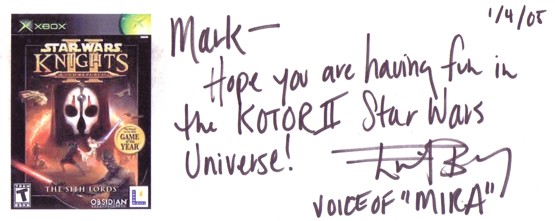 XBOX
STAR WARS
KNIGHTS
II
OF THE OLD REPUBLIC
GAME
OF THE
YEAR
THE SITH LORDS
TEEN
T
OBSIDIAN
1/4/05
Mark—
Hope you are having fun in
the KOTOR II Star Wars
Universe!
VOICE OF "MIRA"